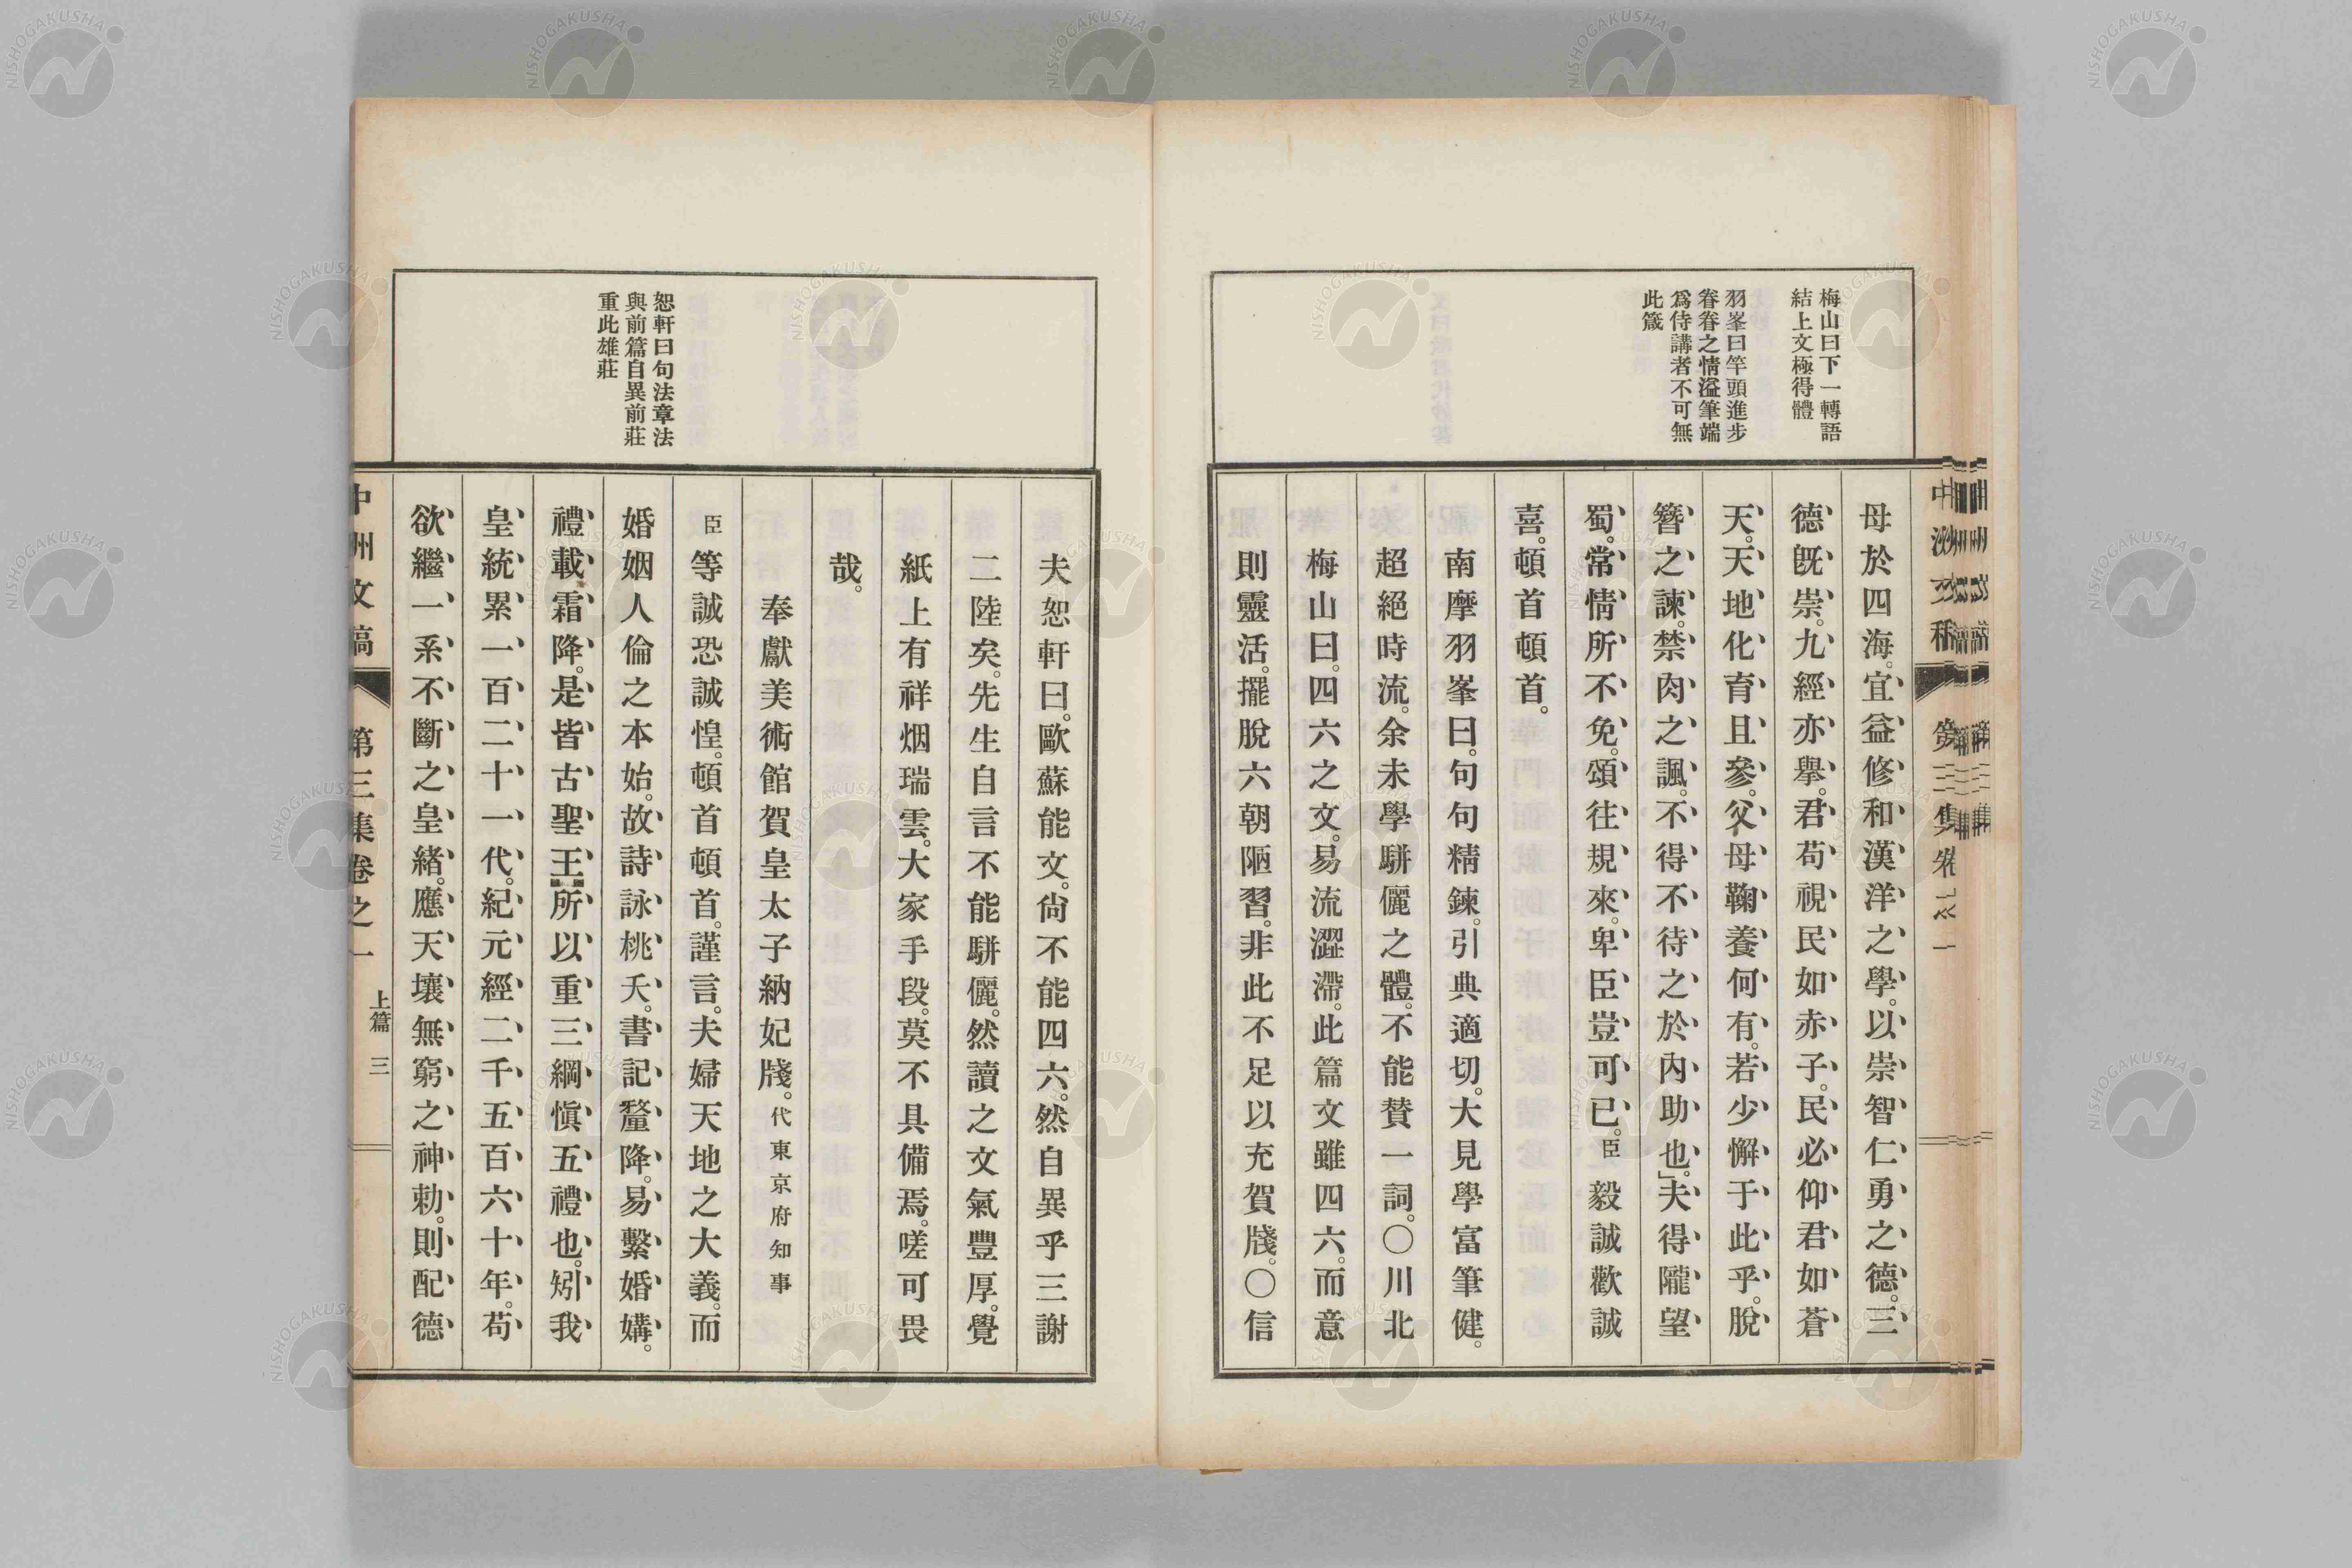 梅山曰下一轉語
結上文極得體
羽峯曰竿頭進步
眷眷之情溢筆端
爲侍講者不可無
此箴
母於四海。宜益修和漢洋之學。以崇智仁勇之德。三
德旣崇。九經亦擧。君苟視民如赤子。民必仰君如蒼
天。天地化育且參。父母鞠養何有。若少懈于此乎。脫
簪之諫。禁肉之諷。不得不待之於內助也。」夫得隴望
蜀。常情所不免。頌往規來。卑臣豈可已。臣毅誠歡誠
喜。頓首頓首。
南摩羽峯曰。句句精鍊。引典適切。大見學富筆健。
超絕時流。余未學駢儷之體。不能賛一詞。〇川北
梅山曰。四六之文。易流澀滯。此篇文雖四六。而意
則靈活。擺脫六朝陋習。非此不足以充賀牋。〇信
恕軒曰句法章法
與前篇自異前莊
重此雄莊
夫恕軒曰。歐蘇能文。尙不能四六。然自異乎三謝
二陸矣。先生自言不能駢儷。然讀之文氣豐厚。覺
紙上有祥烟瑞雲。大家手段。莫不具備焉。嗟可畏
哉。
奉獻美術館賀皇太子納妃牋。代東京府知事
臣等誠恐誠惶。頓首頓首。謹言。夫婦天地之大義。而
婚姻人倫之本始。故詩詠桃夭。書記釐降。易繫婚媾。
禮載霜降。是皆古聖王所以重三綱愼五禮也。矧我
皇統累一百二十一代。紀元經二千五百六十年。苟
欲繼一系不斷之皇緖。應天壤無窮之神勅。則配德
中洲文稿 第三集卷之一 上篇 三